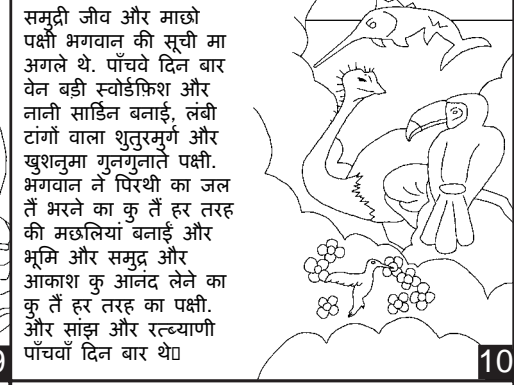 समुद्री जीव और माछो
पक्षी भगवान की सूची मा
अगले थे. पाँचवे दिन बार
वेन बड़ी स्वोर्डफ़िश और
नानी सार्डिन बनाई, लंबी
टांगों वाला शुतुरमुर्ग और
खुशनुमा गुनगुनाते पक्षी.
भगवान ने पिरथी का जल
तैं भरने का कु तैं हर तरह
की मछलियां बनाईं और
भूमि और समुद्र और
आकाश कु आनंद लेने का
कु तैं हर तरह का पक्षी.
और सांझ और रत्ब्याणी
पाँचवाँ दिन बार थे
9
10